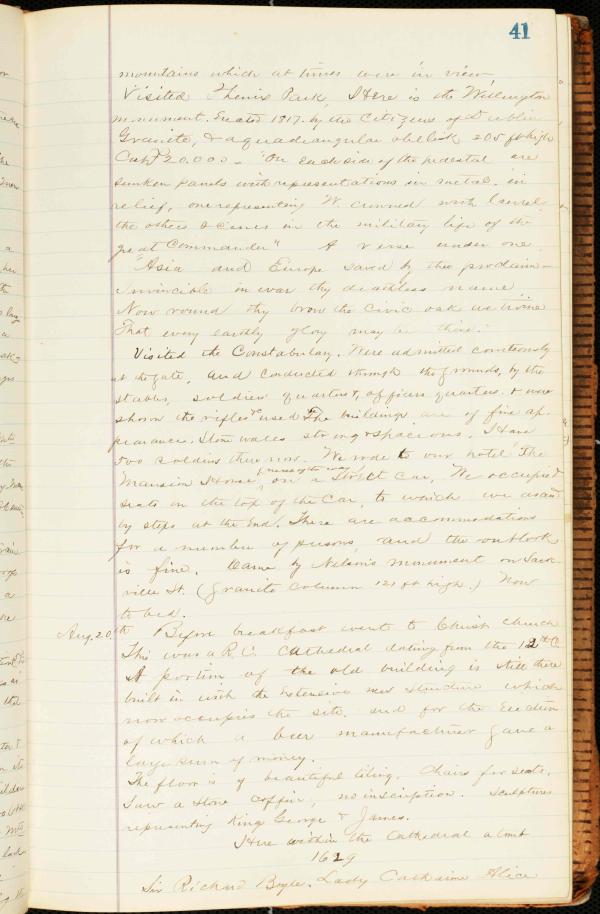 41
mountains which at times were in view
Visited Phenix Park, Here is the Wellington
monument. Erected 1817. by the Citizens of Dublin
Granite, & a quadrangular obelisk 205 ft high
Cost £20.000 – "On each side of the pedestal are
sunken panels with representations in metal. in
relief, one representing W. crowned with laurel
the others scenes in the military life of the
great Commander" A verse under one
"Asia and Europe saved by thee proclaim–
Invincible in war thy deathless name
Now round thy brow the Civic oak we twine
That every earthly glory may be thine."
Visited the Constabulary. Were admitted courteously
at the gate, and conducted through the grounds, by the
stables, soldiers quarters, officers quarters. & were
shown the rifles used The buildings are of fine ap-
pearance. Stone walls strong & spacious. Have
500 soldiers there now. We rode to our hotel "The
Mansion House, on a Street Car, We occupied
seats on the top of the Car, to which we
by steps at the End. There are accommodations
for a number of persons, and the outlook
is fine. Came by Nelson's monument on Sack-
ville St. (granite column 121 ft high.) Now
to bed.
Aug. 20th Before breakfast went to Christ Church
This was a R.C. Cathedral dating from the 12th C.
A portion of the old building is still there
built in with the extensive new structure which
now occupies the site. and for the Erection
of which a beer manufacturer gave a
large sum of money.
The floor is of beautiful tiling. Chairs for seats.
Saw a stone coffin, no inscription. Sculptures
representing King George & James.
Here within the Cathedral a
1629
Sir Richard Boyle. Lady Catharine Alice